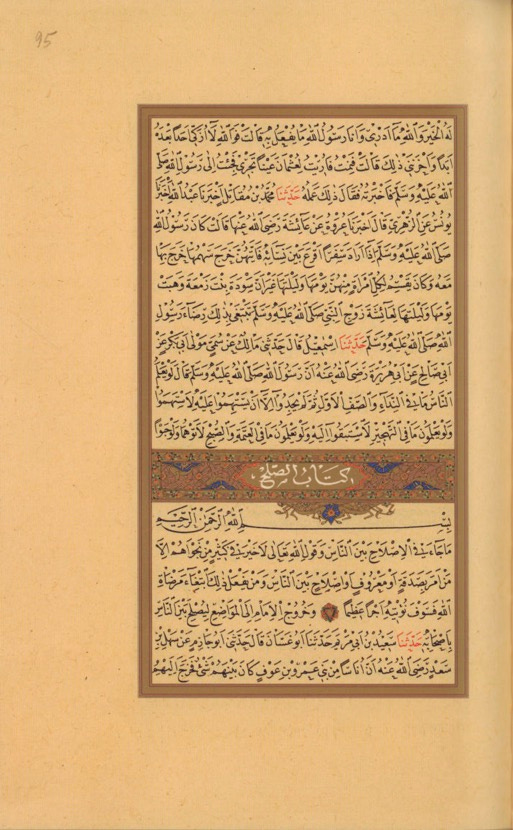 95
لَهُ الْخَيْرَ وَاللّٰهِ مَا اَدْرِى وَاَنَا رَسُولُ اللّٰهِ مَا يُفْعَلُ بِهِ قَالَتْ فَوَاللّٰهِ لَا اُزَكِّى اَحَدًا بَعْدَهُ
اَبَدًا وَاَحْزَنَنِى ذٰلِكَ قَالَتْ فَنِمْتُ فَاُرِيتُ لِعُثْمَانَ عَيْنًا تَجْرِى فَجِئْتُ اِلٰى رَسُولِ اللّٰهِ صَلَّى
اللّٰهُ عَلَيْهِ وَسَلَّمَ فَاَخْبَرْتُهُ فَقَالَ ذٰلِكَ عَمَلُهُ حَدَّثَنَا مُحَمَّدُ بْنُ مُقَاتِلٍ اَخْبَرَنَا عَبْدُ اللّٰهِ اَخْبَرَنَا
يُونُسُ عَنِ الزُّهْرِىِّ قَالَ اَخْبَرَنَا عُرْوَةُ عَنْ عَائِشَةَ رَضِىَ اللّٰهُ عَنْهَا قَالَتْ كَانَ رَسُولُ اللّٰهِ
صَلَّى اللّٰهُ عَلَيْهِ وَسَلَّمَ اِذَا اَرَادَ سَفَرًا اَقْرَعَ بَيْنَ نِسَائِهِ فَاَيَّتُهُنَّ خَرَجَ سَهْمُهَا خَرَجَ بِهَا
مَعَهُ وَكَانَ يَقْسِمُ لِكُلِّ امْرَاَةٍ مِنْهُنَّ يَوْمَهَا وَلَيْلَتَهَا غَيْرَ اَنَّ سَوْدَةَ بِنْتَ زَمْعَةَ وَهَبَتْ
يَوْمَهَا وَلَيْلَتَهَا لِعَائِشَةَ زَوْجِ النَّبِىِّ صَلَّى اللّٰهُ عَلَيْهِ وَسَلَّمَ تَبْتَغِى بِذٰلِكَ رِضَاءَ رَسُولِ
اللّٰهِ صَلَّى اللّٰهُ عَلَيْهِ وَسَلَّمَ حَدَّثَنَا اِسْمٰعِيلُ قَالَ حَدَّثَنِى مَالِكٌ عَنْ سُمَىٍّ مَوْلٰى اَبِى بَكْرٍ عَنْ
اَبِى صَالِحٍ عَنْ اَبِى هُرَيْرَةَ رَضِىَ اللّٰهُ عَنْهُ اَنَّ رَسُولَ اللّٰهِ صَلَّى اللّٰهُ عَلَيْهِ وَسَلَّمَ قَالَ لَوْ يَعْلَمُ
النَّاسُ مَا فِى النِّدَاءِ وَالصَّفِّ الْاَوَّلِ ثُمَّ لَمْ يَجِدُوا اِلَّا اَنْ يَسْتَهِمُوا عَلَيْهِ لَاسْتَهَمُوا
وَلَوْ يَعْلَمُونَ مَا فِى التَّهْجِيرِ لَاسْتَبَقُوا اِلَيْهِ وَلَوْ يَعْلَمُونَ مَا فِى الْعَتَمَةِ وَالصُّبْحِ لَاَتَوْهُمَا وَلَوْ حَبْوًا
كتاب الصلح
بِسْمِ اللّٰهِ الرَّحْمٰنِ الرَّحِيمِ
مَا جَاءَ فِى الْاِصْلَاحِ بَيْنَ النَّاسِ وَقَوْلِ اللّٰهِ تَعَالٰى لَا خَيْرَ فِى كَثِيرٍ مِنْ نَجْوٰاهُمْ اِلَّا
مَنْ اَمَرَ بِصَدَقَةٍ اَوْ مَعْرُوفٍ اَوْ اِصْلَاحٍ بَيْنَ النَّاسِ وَمَنْ يَفْعَلْ ذٰلِكَ ابْتِغَاءَ مَرْضَاةِ
اللّٰهِ فَسَوْفَ نُؤْتِيهِ اَجْرًا عَظِيمًا وَخُرُوجِ الْاِمَامِ اِلَى الْمَوَاضِعِ لِيُصْلِحَ بَيْنَ النَّاسِ
بِاَصْحَابِهِ حَدَّثَنَا سَعِيدُ بْنُ اَبِى مَرْيَمَ حَدَّثَنَا اَبُو غَسَّانَ قَالَ حَدَّثَنِى اَبُو حَازِمٍ عَنْ سَهْلِ بْنِ
سَعْدٍ رَضِىَ اللّٰهُ عَنْهُ اَنَّ اُنَاسًا مِنْ بَنِى عَمْرِو بْنِ عَوْفٍ كَانَ بَيْنَهُمْ شَىْءٌ فَخَرَجَ اِلَيْهِمُ